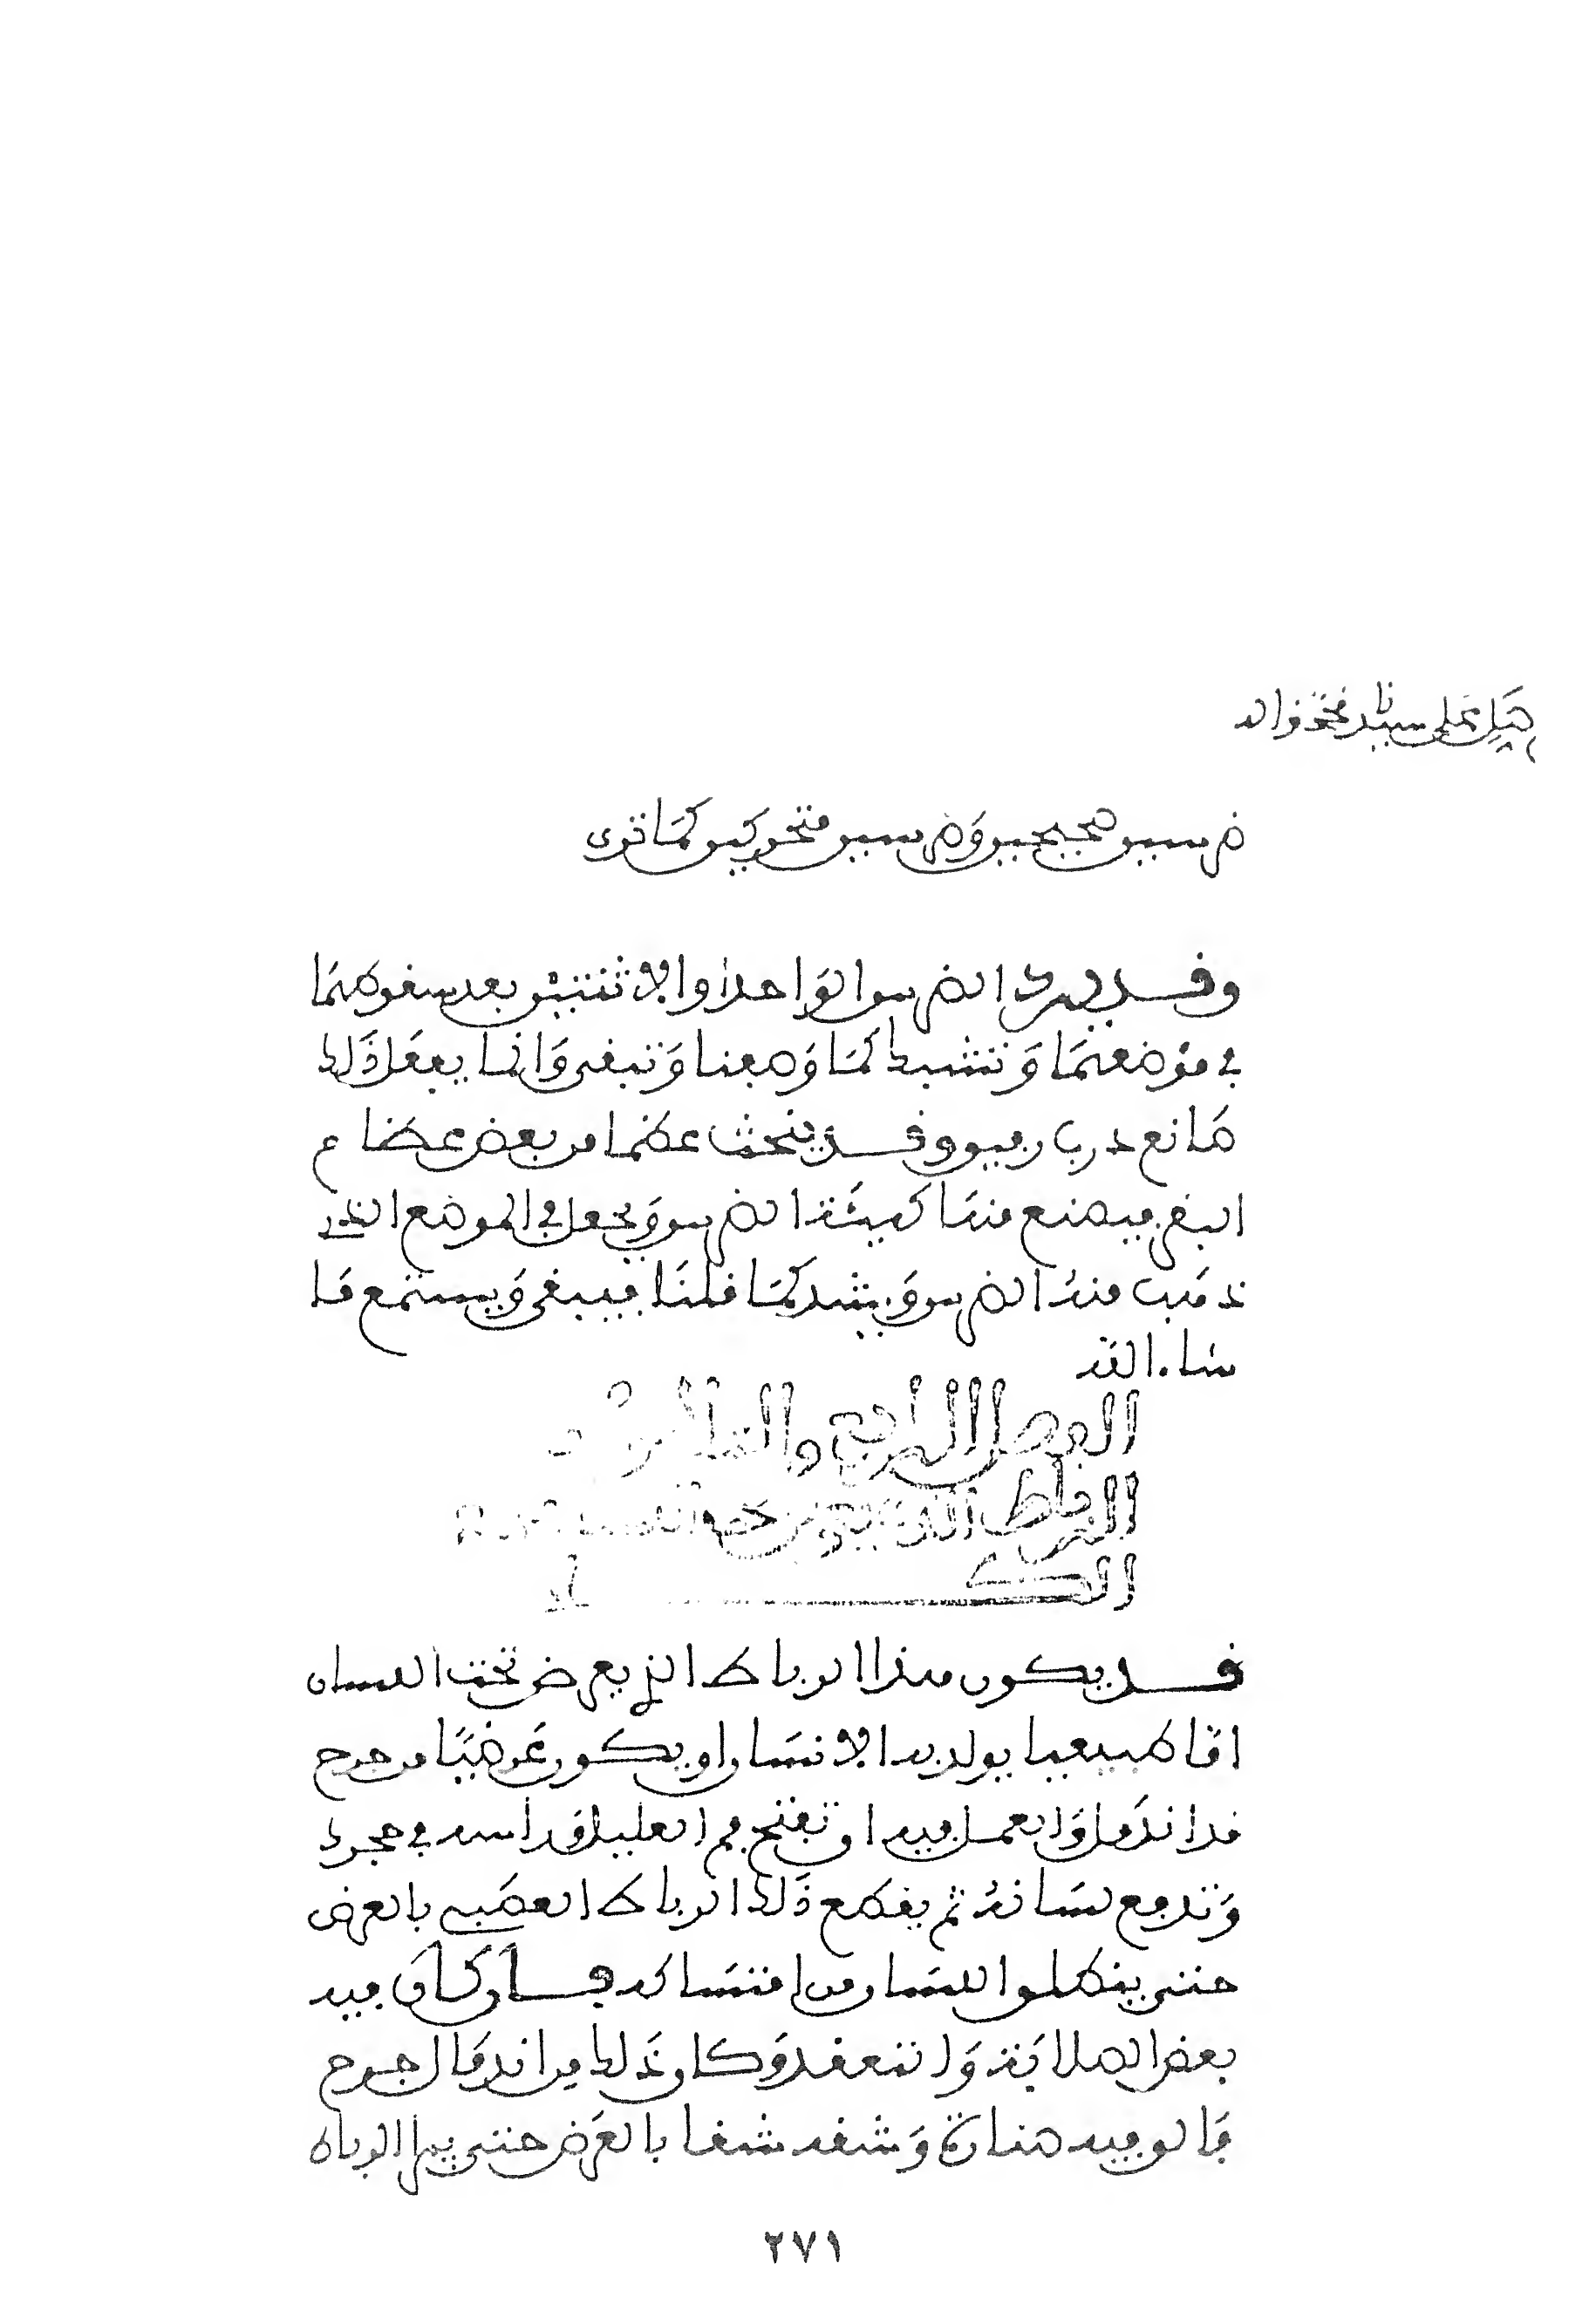 صل على سيدنا محمد واله
ضرسين صحيحين وضرسين متحركين كما ترى
وقد يرد الضرس الواحد او الاثنتين بعد سقوطهما
في موضعهما وتشبك كما وصفنا وتبقى وانما يفعل ذلك
صانع درب رفيق وقد ينحت عظما من بعض عظام
البقر فيصنع منها كهيئة الضرس ويجعل في الموضع الذي
ذهب منه الضرس ويشد كما قلنا فيبقى ويستمتع ما
شاء الله
الفصل الرابع والثلاثون
الرباط الذي يعرض تحت اللسان
الكلام
قد يكون هذا الرباط الذي يعرض تحت اللسان
اما طبيعيا يولد به الانسان او يكون عرضيا من جرح
قد اندمل والعمل فيه ان تفتح فم العليل وراسه في حجرك
وترفع لسانه ثم يقطع ذلك الرباط العصبي بالعرض
حتى ينطلق اللسان من امتساكه فان كان فيه
بعض الصلابة والتعقد وكان ذلك من اندمال جرح
فالق فيه صنارة وشقه شقا بالعرض حتى يبرا الرباط
٢٧١